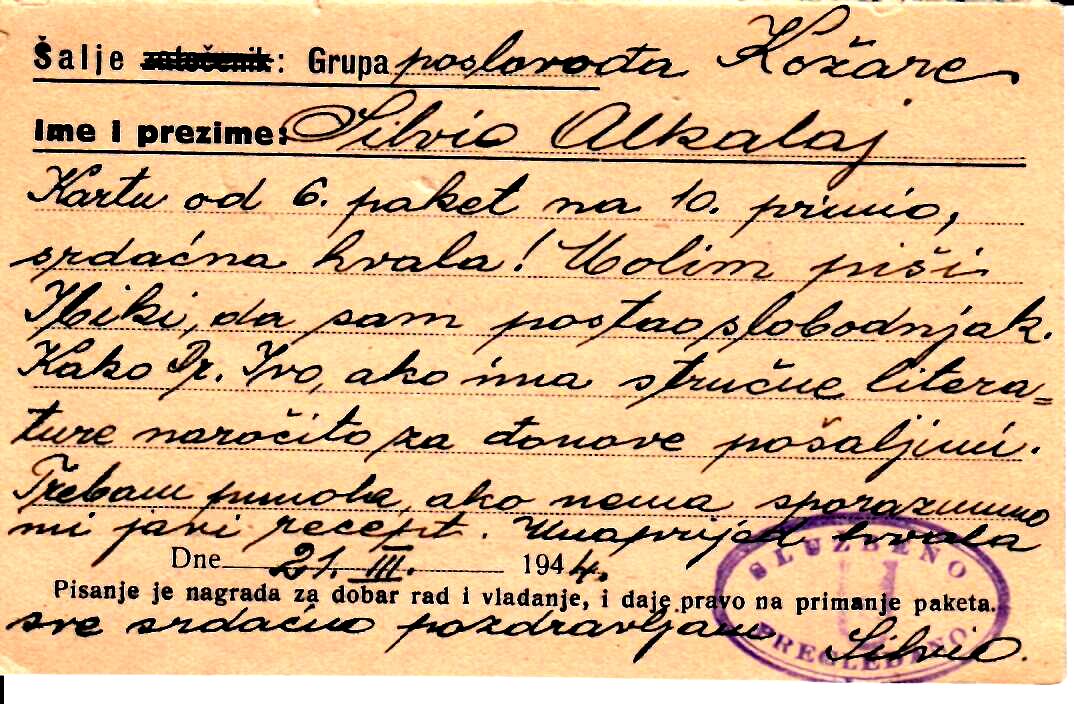 Šalje zatočenik: Grupa poslovođa Kožare
Ime i prezime: Silvio Alkalaj
Kartu od 6. paket na 10. primio,
srdaćna hvala! Molim piši
da sam postao slobodnjak.
Kako Dr. Ivo, ako ima stručne litera=
ture naročito za đonove pošaljimi.
Trebam ako nema sporazumno
mi javi recept. Unaprijed hvala
Dne 21. III. 1944.
Pisanje je nagrada za dobar rad i vladanje, i daje pravo na primanje paketa.
sve srdaćno pozdravljam Silvio.
SLUŽBENO
U
PREGLEDANO